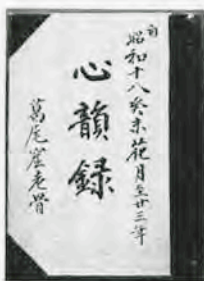 自昭和十八癸未花月至廿三年
心韻録
葛尾窟老骨